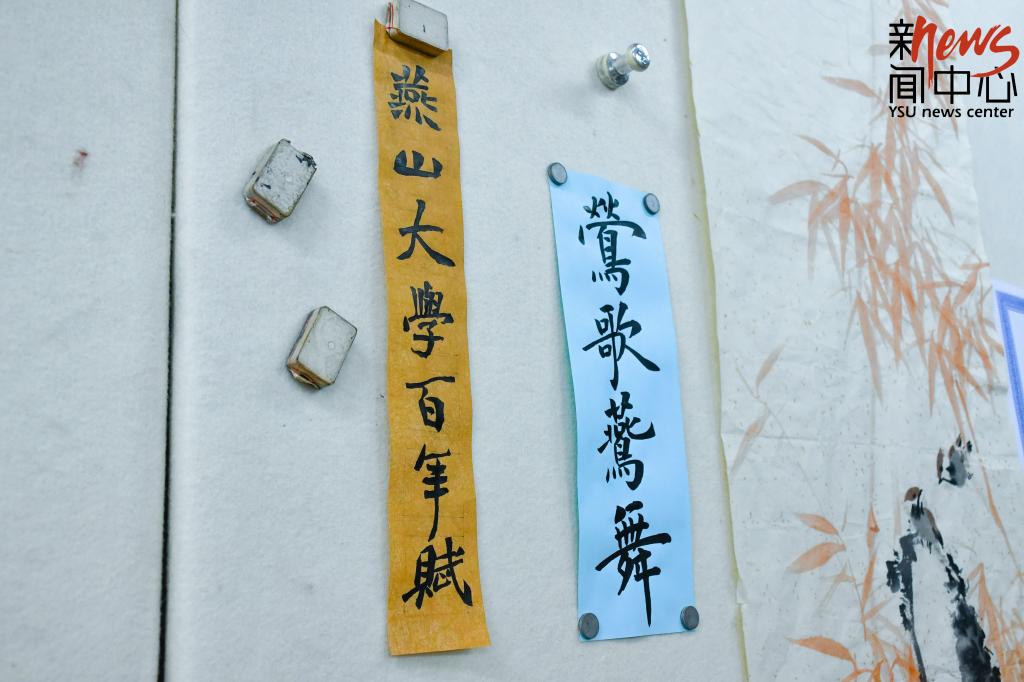 燕山大學百年賦
鶯歌鷰舞
新news
闻中心
YSU news center